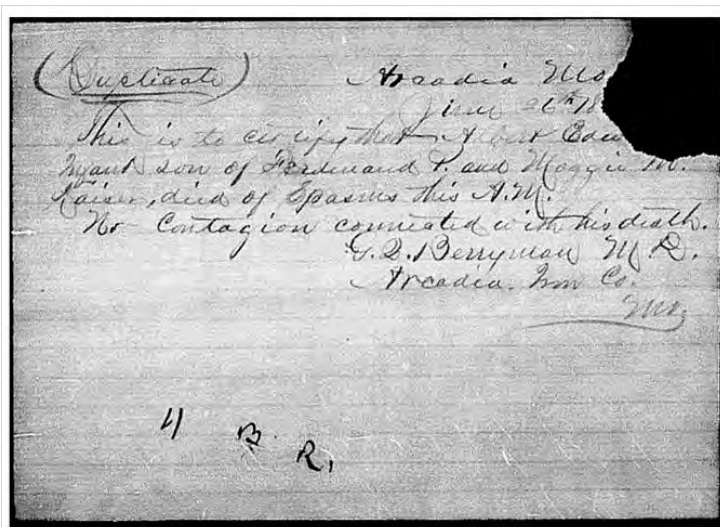 (Duplicate) Arcadia Mo
June 26th 18
This is to certify that Albert Edw
Infant son of Ferdinand P. and Maggie M.
Kaiser, died of Spasms this A.M.
No Contagion connected with his death.
G. D. Berryman M D.
Arcadia. Iron Co.
Mo.
4 B. R.